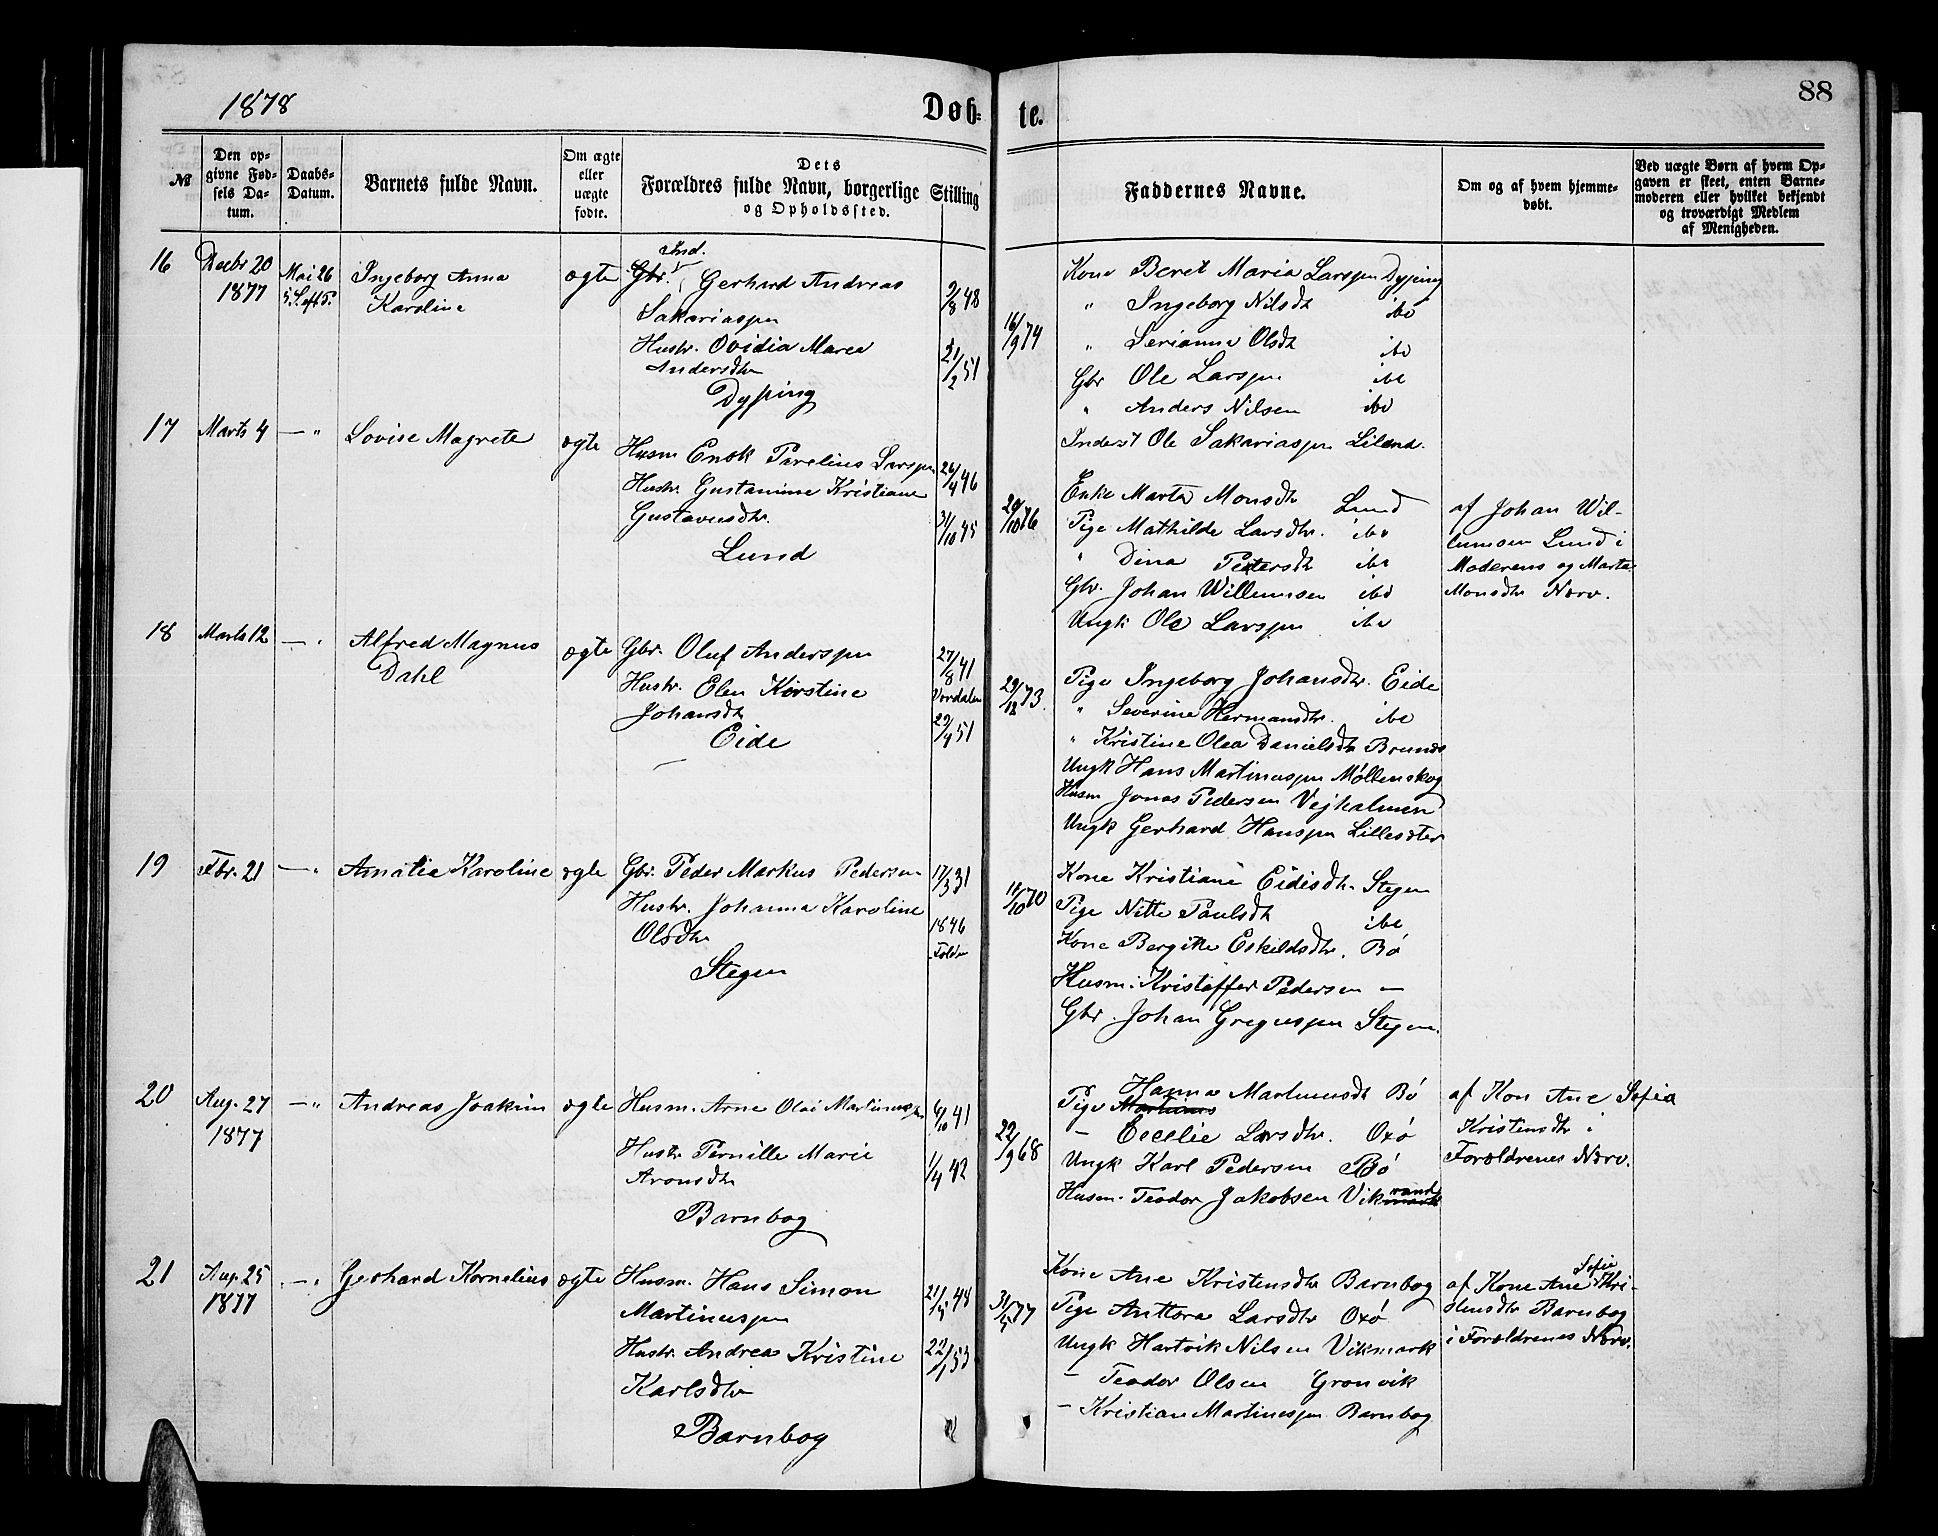 1878
Døb-
te.
88
№
Den op-
givne Fød-
sels Da-
tum.
Daabs-
Datum.
Barnets fulde Navn.
Om ægte
eller
uægte
fødte.
Dets
Forældres fulde Navn, borgerlige Stilling
og Opholdssted.
Faddernes Navne.
Om og af hvem hjemme-
døbt.
Ved uægte Børn af hvem Op-
gaven er skeet, enten Barne-
moderen eller hvilket bekjendt
og troværdigt Medlem
af Menigheden.
16
Decbr 20
1877
Mai 26
5. S. eft P.
Ingeborg Anna
Karoline
ægte
Ind.
Gbr. Gerhard Andreas
Sakariassen
Hustr. Ovidia Marea
Andersdtr
Dypping
9/8 48
21/2 51
16/9 74
Kone Beret Maria Larssen Dyping
" Ingeborg Nilsdt ibd
" Serianna Olsdt ibd
Gbr Ole Larssen ibd
" Anders Nilsen ibd
Inderst Ole Sakariassen Liland.
17
Marts 4
— "
Lovise Magrete
ægte
Husm Enok Parelius Larssen
Hustr. Gustanime Kristiane
Gustavusdtr.
Lund
26/4 46
31/10 45
29/10 76
Enke Marta Monsdt Lund
Pige Mathilde Larsdtr. ibd
" Dina Petersdt ibd
Gbr. Johan Willumsen ibd
Ungk Ole Larssen ibd
af Johan Wil-
lumsen Lund i
Moderens og Marta
Monsdtr Nærv.
18
Marts 12
— "
Alfred Magnus
Dahl
ægte
Gbr. Oluf Anderssen
Hustr. Elen Kirstine
Johansdt
Eide
27/8 41
Værdalen
29/4 51
29/12 73
Pige Ingeborg Johansdtr. Eide
" Severine Hermansdtr. ibd
" Kristine Olea Danielsdt
Ungk Hans Martinussen Møllenskog
Husm Jonas Pedersen Vejhalmen
Ungk Gerhard Hanssen
19
Fbr. 21
— "
Amalia Karoline
ægte
Gbr. Peder Markus Pedersen
Hustr. Johanna Karoline
Olsdtr
Stegen
17/3 31
1846
Folden
11/10 70
Kone Kristiane Eidisdtr. Stegen
Pige Nitte Paulsdt ibd
Kone Bergitte Eskildsdtr. Bø
Husm. Kristoffer Pedersen —
Gbr. Johan Gregussen Stegen.
20
Aug. 27
1877
— "
Andreas Joakim
ægte
Husm. Arne Olai Martinussen
Hustr Pernille Marie
Aronsdtr
Barnbog
6/10 41
1/4 42
22/9 68
Pige Hanna Martinusdt Bø
— Cecelie Larsdtr. Oxø
Ungk Karl Pedersen Bø
Husm. Teodor Jakobsen Vikrand
af Kon Ane Sofia
Kristensdtr i
Forældrenes Nærv.
21
Aug. 25
1877
— "
Gerhard Kornelius
ægte
Husm. Hans Simon
Martinussen
Hustr. Andrea Kristine
Karlsdtr
Barnbog
21/5 48
22/1 53
31/5 77
Kone Ane Kristensdtr Barnbog
Pige Anttora Larsdtr Oxø
Ungk Hartvik Nilsen Vikmark
— Teodor Olsen Grønvik
— Kristian Martinussen Barnbog
af Kone Ane Sofie Kri-
stensdtr Barnbog
i Forældrenes Nærv.